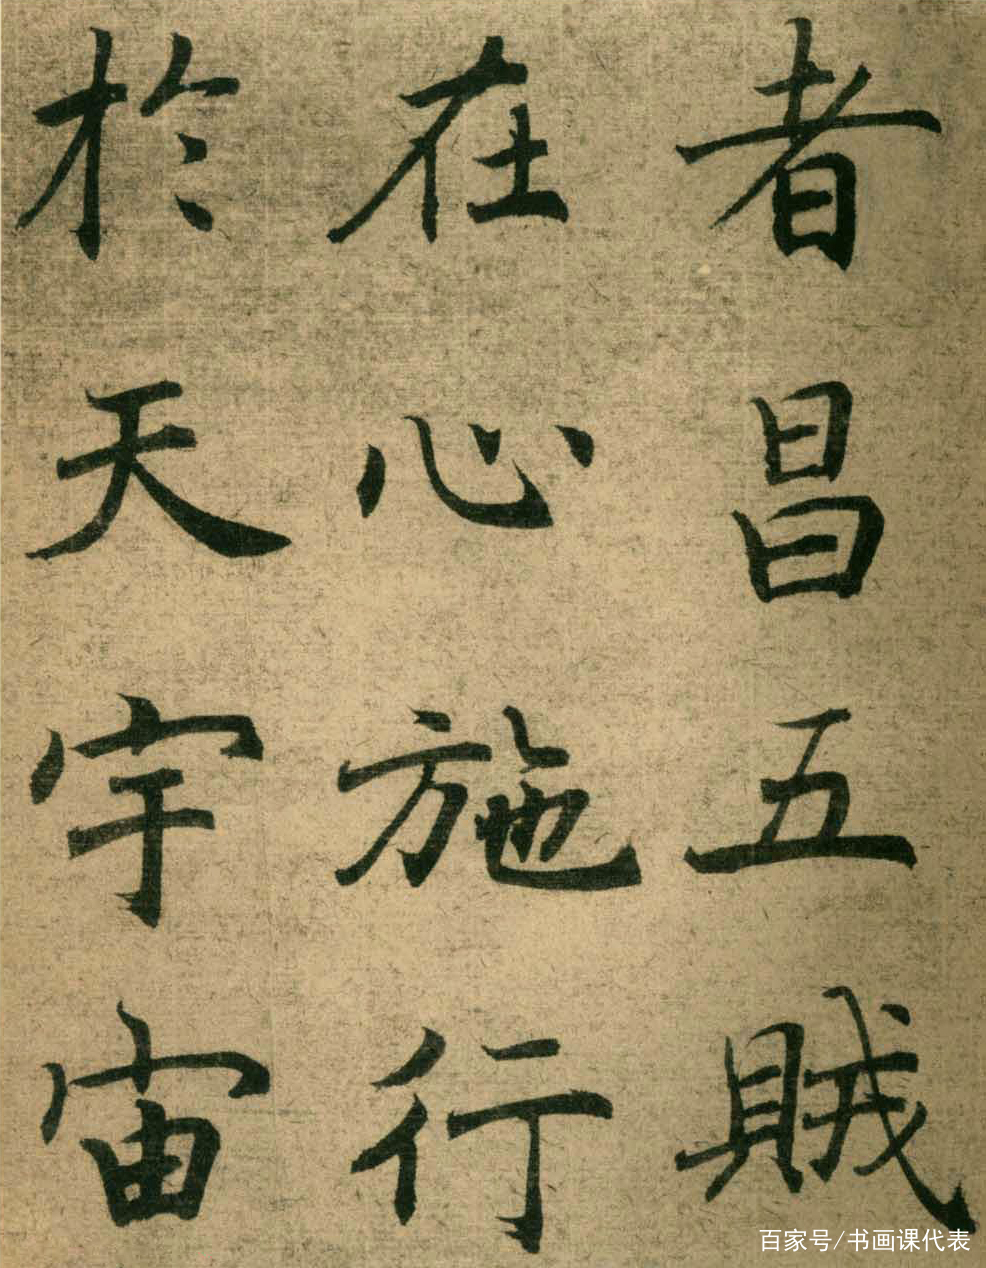 者昌五賊
在心施行
於天宇宙
百家号/书画课代表